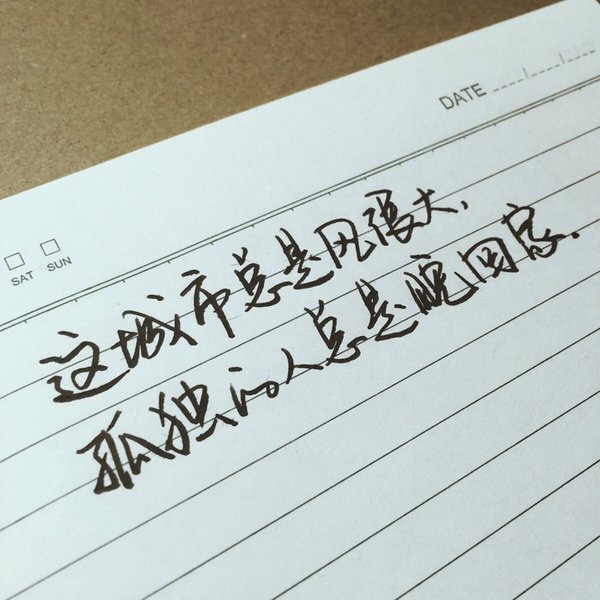 DATE ..../..../....
SAT SUN
这城市总是风很大.
孤独的人总是晚回家.